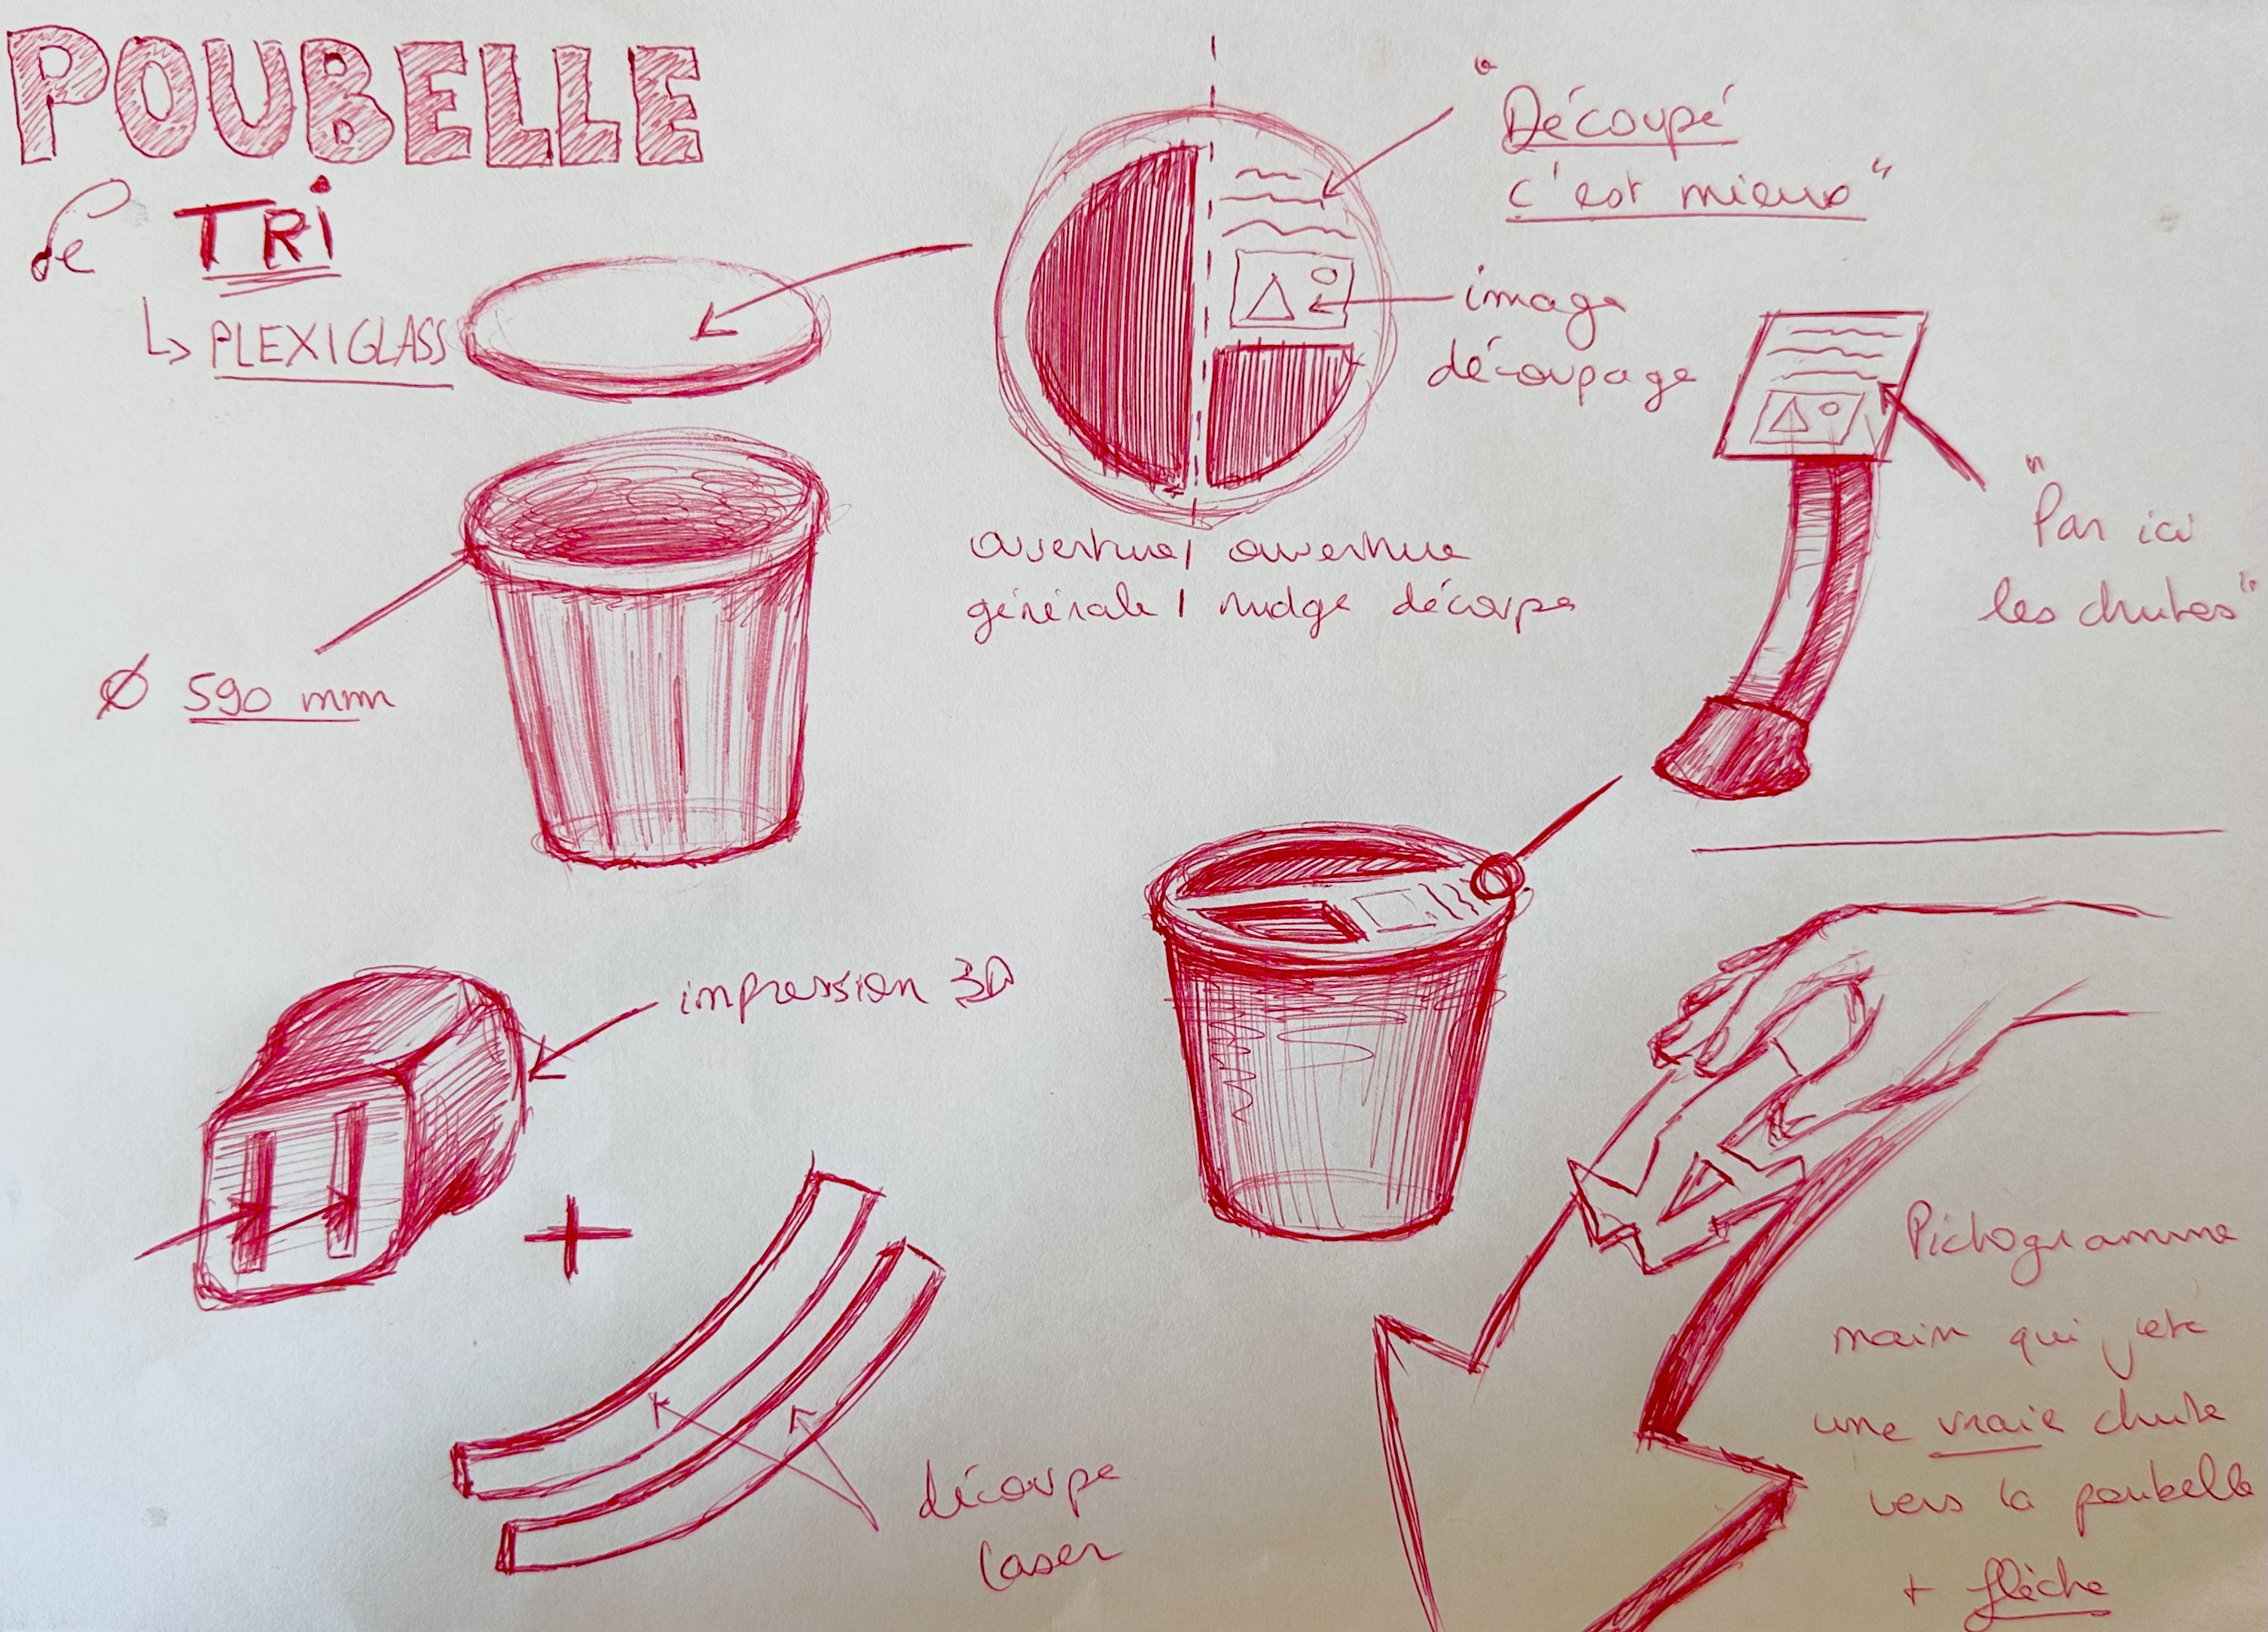 POUBELLE
de TRi
↳ PLEXIGLASS
"Découpé
c'est mieux"
image
découpage
ouverture | ouverture
générale | nudge découpe
"Par ici
les chutes"
Ø 590 mm
impression 3D
+
découpe
laser
Pictogramme
main qui jete
une vraie chute
vers la poubelle
+ flèche